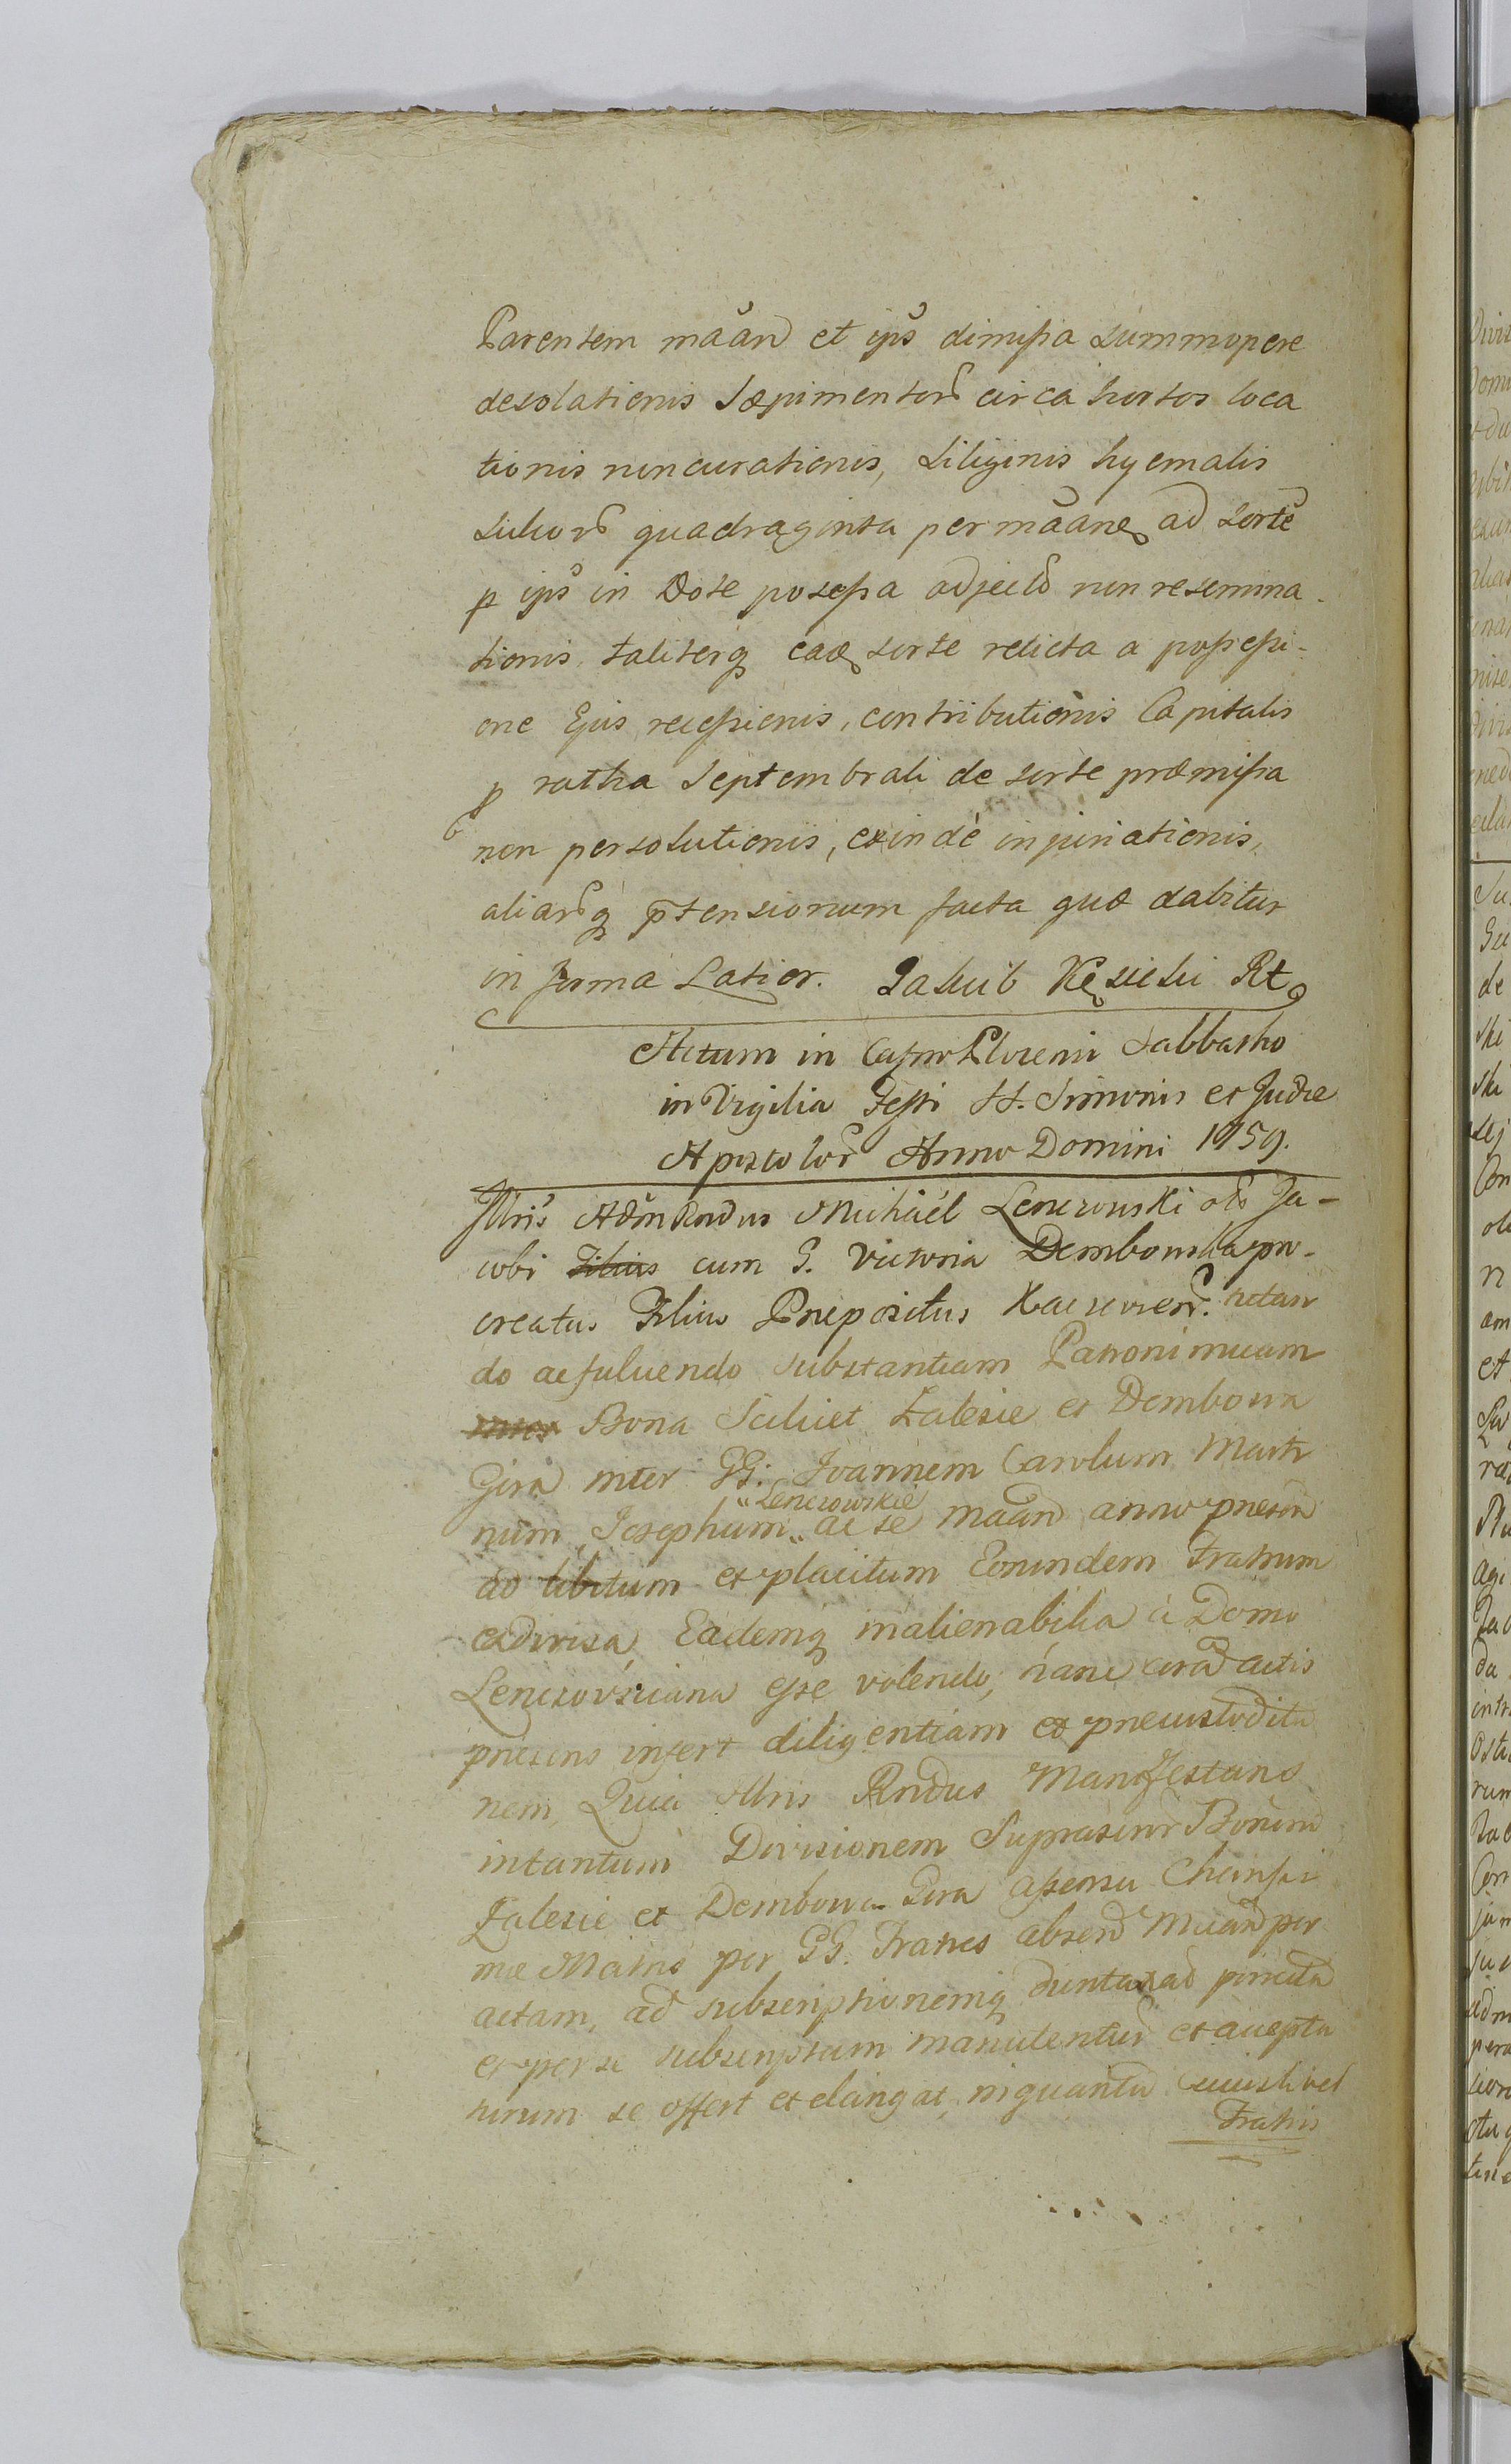 Parentem māan et ips dimissa summopere
desolationis Sæpimentor circa hortos loca
tionis non curationis, siliginis hyemalis
quadraginta per māane ad sorte
p ips in Dote possessa adjecto non resemina-
tionis, taliterq eade sorte relicta a possessi-
one Ejus recessionis, contributionis Capitalis
p ratha Septembrali de sorte præmissa
non persolutionis, exinde injuriationis,
aliarq ptensionum facta quæ dabitur
in forma Latior. Jakub
Actum in Sabbatho
in Vigilia Festi SS. Simonis et Judæ
Apostolor Anno Domini 1759.
Illris AdmRndus Michäel Lenczowski olo Ja-
cobi Filius cum G. Victoria Dembowska pro-
creatus Filius Præpositus
do ac substantiam Patronimicam
inter Bona Scilicet Zalesie et Dembowa
Gora inter GG. Joannem Carolum Marti
num, Josephum „Lenczowskie„ ac se māan anno præsen
ad libitum et placitum Eorundem Fratrum
edivisa, Eademq inalienabilia à Domo
Lencovsciana esse volendo, actis
præsens infert diligentiam et præcustoditio
nem, Quia Illris Rndus Manifestans
intantum Divisionem Suprascr Bonorum
Zalesie et Dembowa Gora assensu Charissi
mæ Matris per GG. Fratres absen per
actam, ad subscriptionemq duntaxat
et per se subscriptam manutentur et accepta
turum se offert et elargat, inquantum cuiuslibet
Fratris